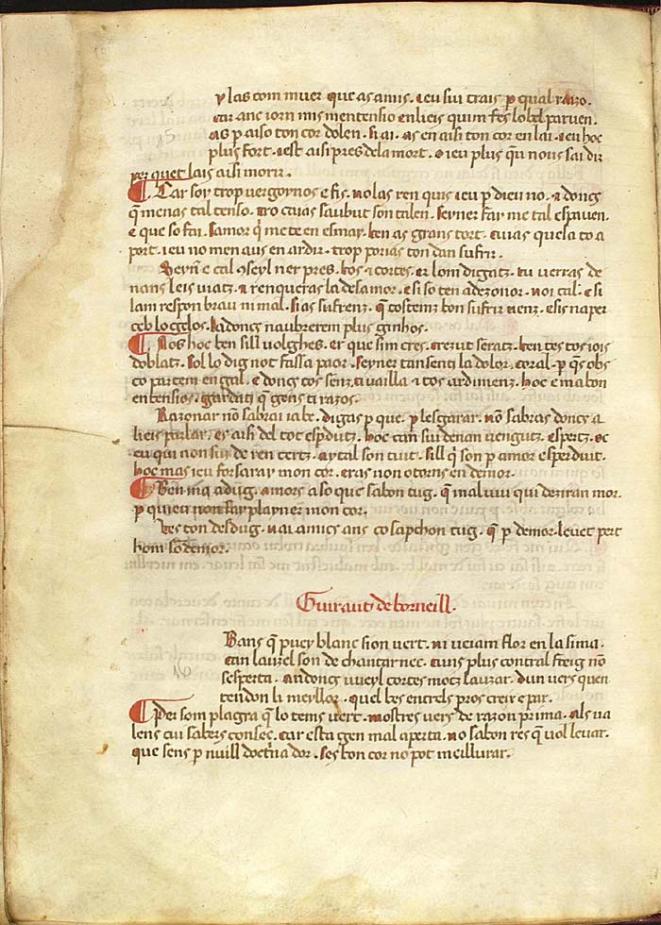 ylas com muer. que as amis. ieu sui trais p qual razo.
car anc iorn mis mentensio enlieis quim fes lobel paruen.
as p aiso ton cor dolen. si ai. as en aisi ton cor en lai. ieu hoc
plus fort. iest aisi pres dela mort. o ieu plus q̄u nous sai dir
per quet lais aisi morir.
Car soy trop uergornos e fis. nolas ren quis ieu p dieu no. a doncs
q̄ menas tal tenso. tro cuias saubut son talen. seyner far me tal espauen.
e que so fai. samor q̄ me te en esmai. ben as grans tort. cuias quela to a
port. ieu no men aus en ardir. trop porias ton dan sufrir.
Seyn̄ e cal oseyl ner pres. bos e cortes. er lom digatz. tu uerras de
nans leis uiatz. a renqueras la de samor. e si so ten adezonor. noi cal. e si
lam respon brau ni mal. sias sufrenz. q̄ costeinz bon sufrir uenz. e sis na per
ceb lo gelos. Adoncs naubrerem plus ginhos.
Nos hoc ben sill uolghes. er que sim cres. crezut seratz. ben tes tos iois
doblatz. sol lo dig not fassa paor. seyner tan senti la dolor. coral. p q̄s obs
co partem en gal. e doncs tos senz. ti uailla e tos ardimenz. hoc e ma bon
entensio. garda ti q̄ gens ti razos.
Razonar nō sabrai ia be. digas p que. p lesgarar. nō sabras doncs a
lieis parlar. es aisi del tot espdutz. hoc can sui denan uengutz. espertz. oc
eu qui non sui de ren certz. aytal son tuit. sill q̄ son p amor esperduit.
hoc mas ieu forsaray mon cor. eras non o torns en demor.
Ben ma adug. amors a so que sabon tug. q̄ mal uiu qui deziran mor.
p quieu non say playner mon cor.
Guiraut de borneill.
Bans q̄ puey blanc sion uert. ni ueiam flor en la sima.
can laurel son de chantar nec. cuns plus contral freig nō
sesperta. Andoncs uueyl cortes motz lauzar. dun uers quen
tendon li meyllor. quel bes entrels pros creir e par.
Pei som plagra q̄ lo tems uert. mostres ueis de razon prima. als ua
lens cui sabers consec. car esta gen mal aperta. no sabon res q̄ uol leuar.
que sens p nuill doctrinador. ses bon cor no pot meillurar.